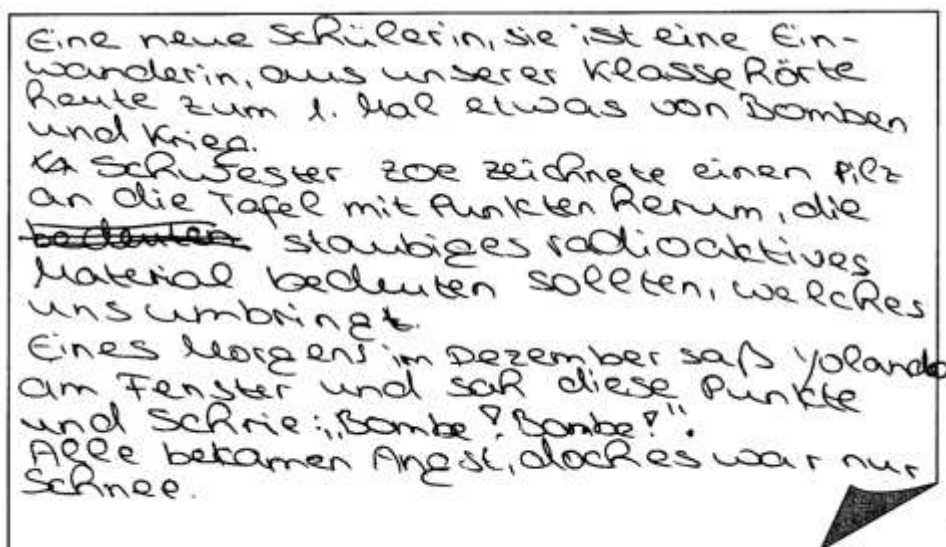 Eine neue Schülerin, sie ist eine Ein-
wanderin, aus unserer Klasse hörte
heute zum 1. Mal etwas von Bomben
und Krieg.
Schwester Zoe zeichnete einen Pilz
an die Tafel mit Punkten herum, die
bedeuten staubiges radioaktives
Material bedeuten sollten, welches
uns umbringt.
Eines Morgens im Dezember saß Yolanda
am Fenster und sah diese Punkte
und schrie: „Bombe! Bombe!".
Alle bekamen Angst, doch es war nur
Schnee.